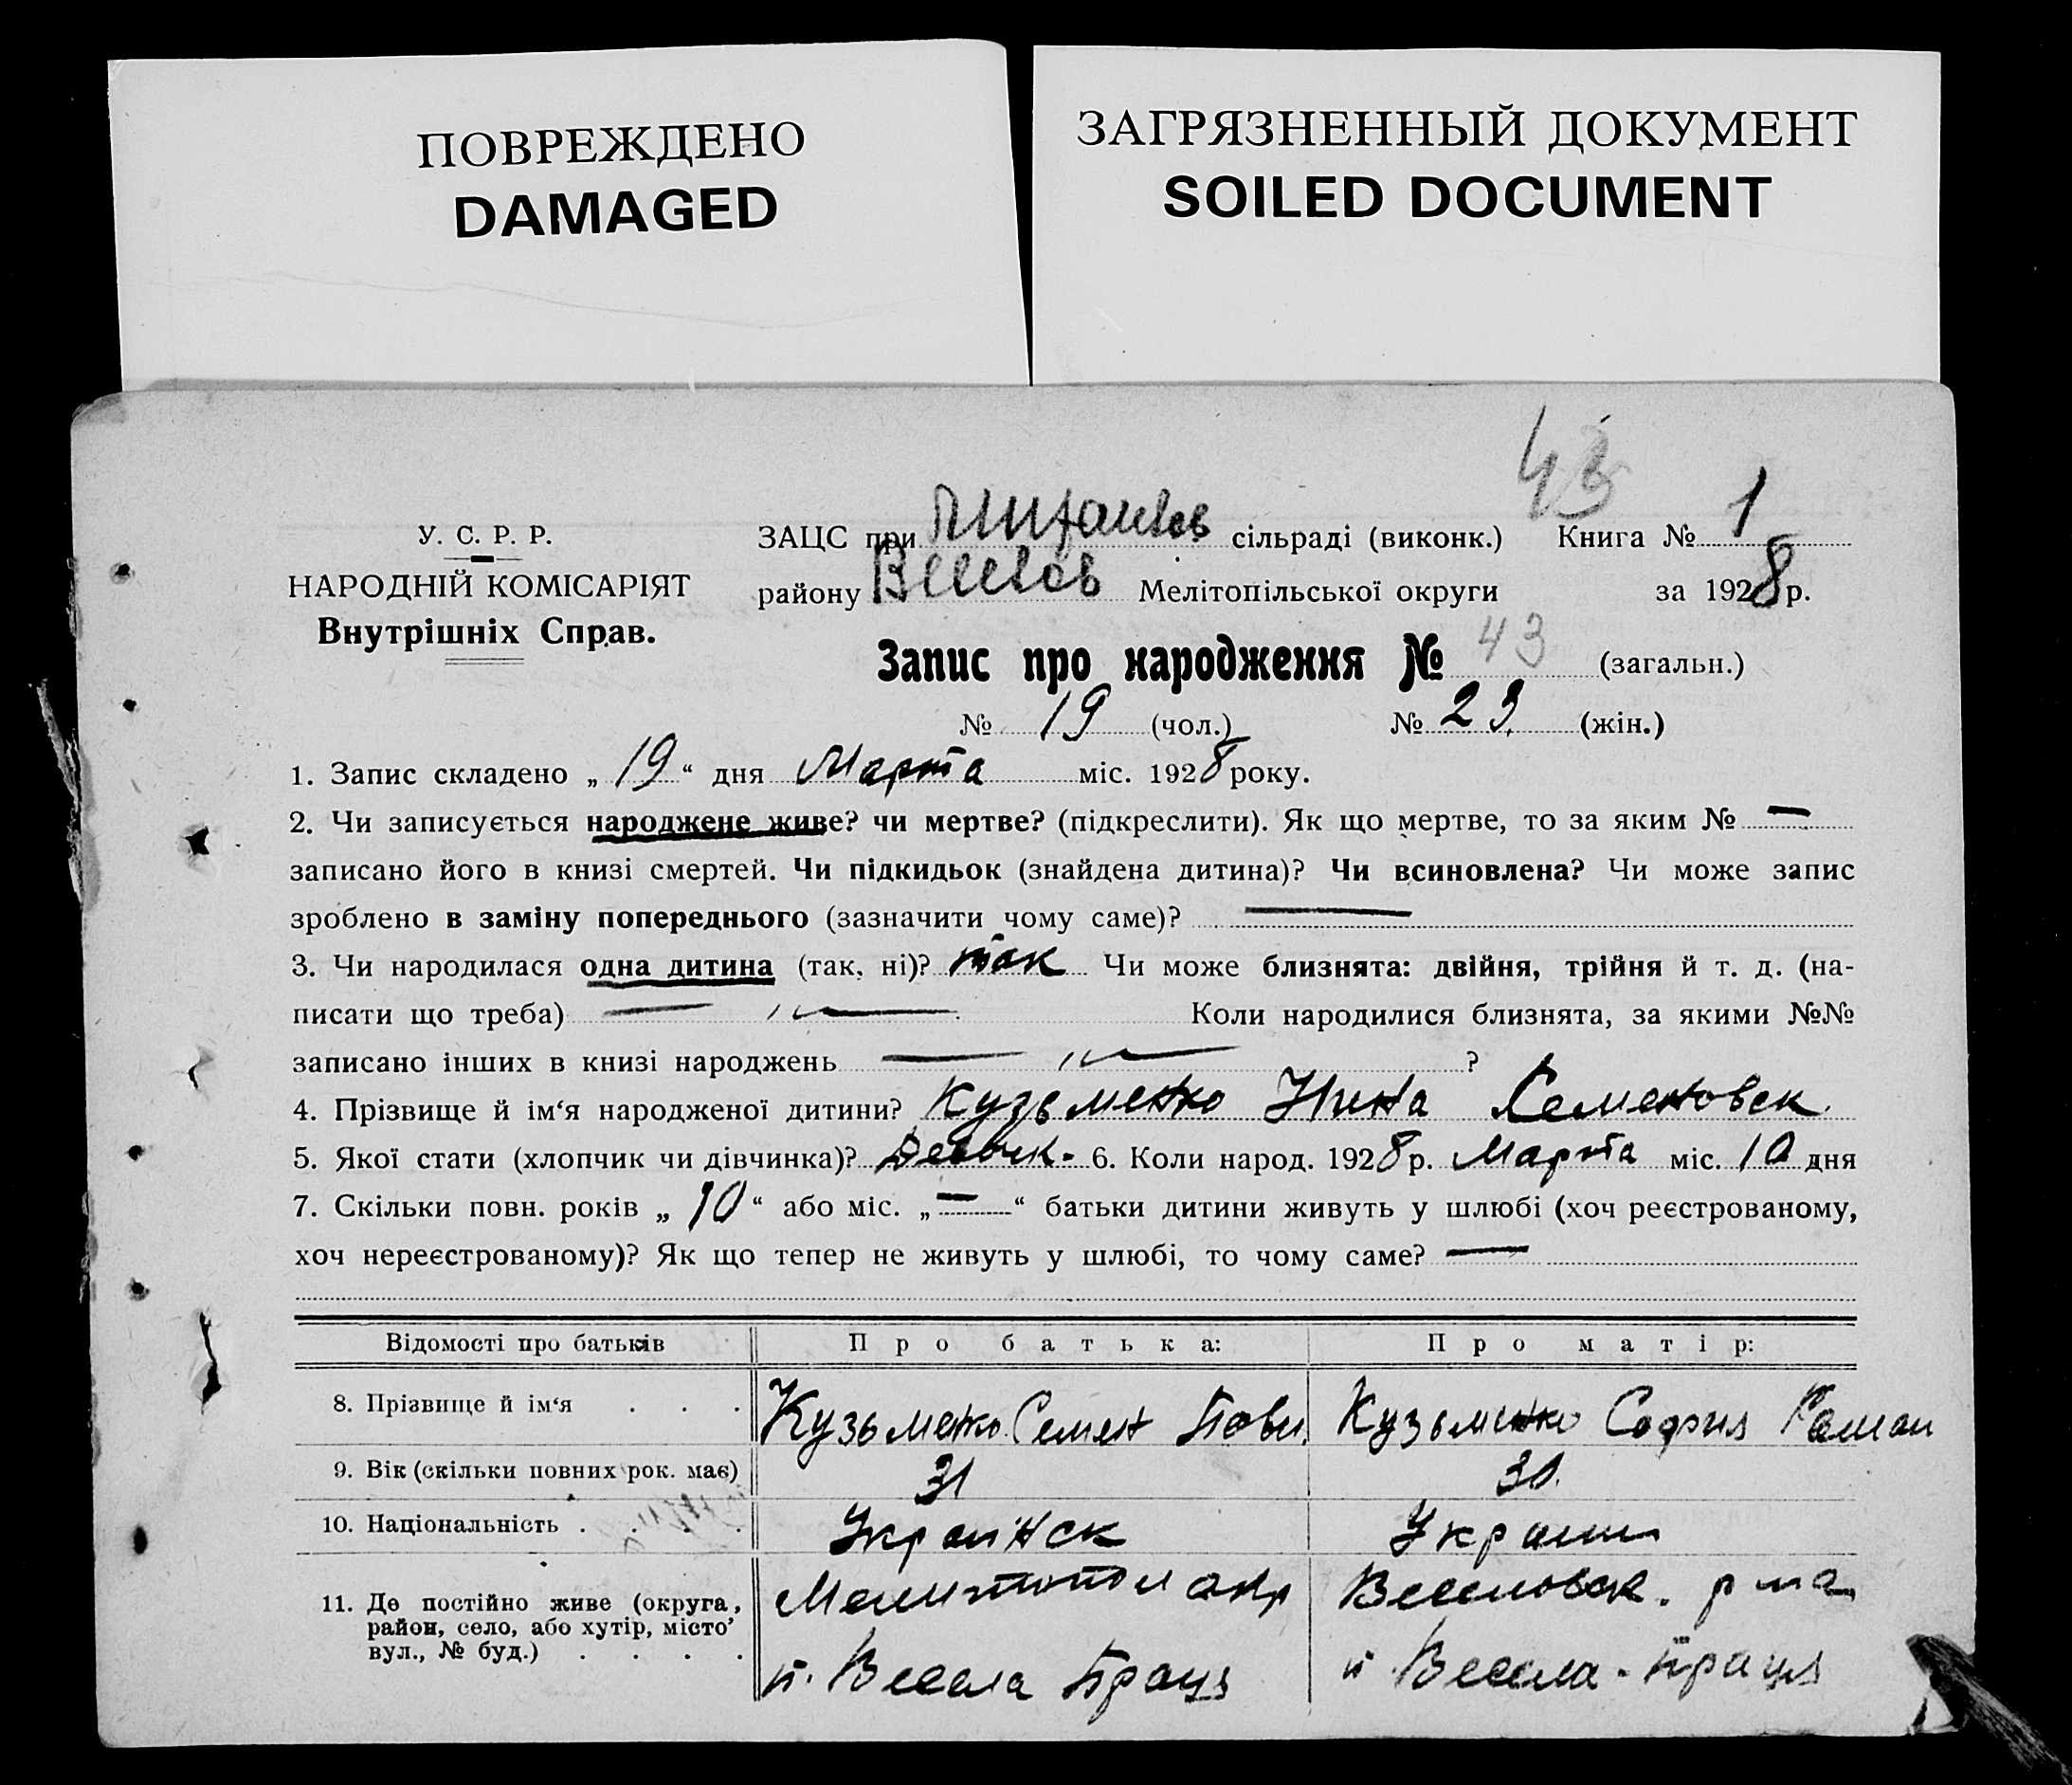 ПОВРЕЖДЕНО
DAMAGED
ЗАГРЯЗНЕННЫЙ ДОКУМЕНТ
SOILED DOCUMENT
43
У. С. Р. Р.
НАРОДНІЙ КОМІСАРІЯТ
Внутрішніх Справ.
ЗАЦС при сільраді (виконк.) Книга № 1
району Веселов Мелітопільської округи за 1928 р.
Запис про народження № 43 (загальн.)
№ 19 (чол.) № 23. (жін.)
1. Запис складено „ 19 “ дня Марта міс. 1928 року.
2. Чи записується народжене живе? чи мертве? (підкреслити). Як що мертве, то за яким № —
записано його в книзі смертей. Чи підкидьок (знайдена дитина)? Чи всиновлена? Чи може запис
зроблено в заміну попереднього (зазначити чому саме)? —
3. Чи народилася одна дитина (так, ні)? так Чи може близнята: двійня, трійня й т. д. (на-
писати що треба) — „ — Коли народилися близнята, за якими №№
записано інших в книзі народжень — „ — ?
4. Прізвище й ім‘я народженої дитини? Кузьменко Нина Семеновск.
5. Якої стати (хлопчик чи дівчинка)? Девочк- 6. Коли народ. 1928 р. Марта міс. 10 дня
7. Скільки повн. років „ 10 “ або міс. „ — “ батьки дитини живуть у шлюбі (хоч реєстрованому,
хоч нереєстрованому)? Як що тепер не живуть у шлюбі, то чому саме? —
Відомості про батьків Про батька: Про матір:
8. Прізвище й ім‘я . . . Кузьменко Семен Кузьменко София Роман
9. Вік (скільки повних рок. має) 31 30.
10. Національність . . . . Украінск Украин
11. Де постійно живе (округа, Мелитопол окр Веселовск. р на
район, село, або хутір, місто,
вул., № буд.) . . . . п. Весела Праця п. Весела-Праця